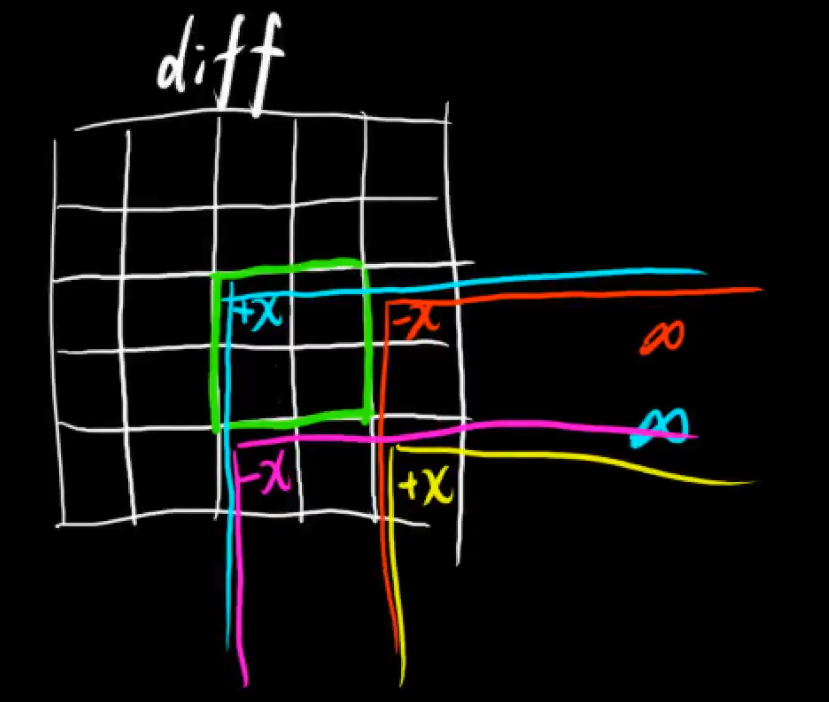 diff
+x
-x
∞
∞
-x
+x